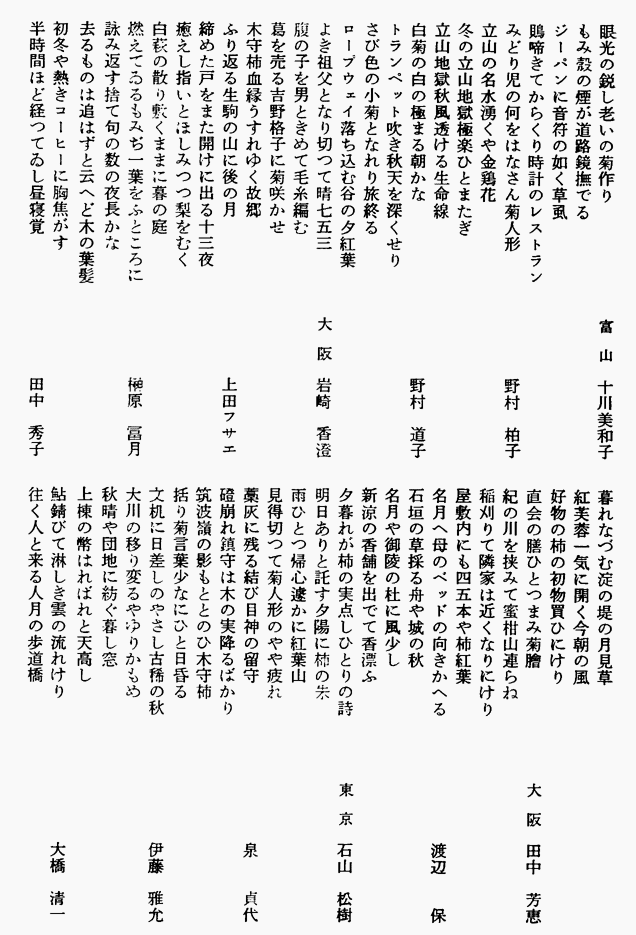 眼光の鋭し老いの菊作り
もみ殻の煙が道路鏡撫でる
ジーパンに音符の如く草虱
鵙啼きてからくり時計のレストラン
みどり児の何をはなさん菊人形
立山の名水湧くや金鶏花
冬の立山地獄極楽ひとまたぎ
立山地獄秋風透ける生命線
白菊の白の極まる朝かな
トランペット吹き秋天を深くせり
さび色の小菊となれり旅終る
ロープウェイ落ち込む谷の夕紅葉
よき祖父となり切つて晴七五三
腹の子を男ときめて毛糸編む
葛を売る吉野格子に菊咲かせ
木守柿血縁うすれゆく故郷
ふり返る生駒の山に後の月
締めた戸をまた開けに出る十三夜
癒えし指いとほしみつつ梨をむく
白萩の散り敷くままに暮の庭
燃えてゐるもみぢ一葉をふところに
詠み返す捨て句の数の夜長かな
去るものは追はずと云へど木の葉髪
初冬や熱きコーヒーに胸焦がす
半時間ほど経つてゐし昼寝覚
富山 十川美和子
野村 柏子
野村 道子
大阪 岩崎 香澄
上田フサエ
榊原 冨月
田中 秀子
暮れなづむ淀の堤の月見草
紅芙蓉一気に開く今朝の風
好物の柿の初物買ひにけり
直会の膳ひとつまみ菊膾
紀の川を挟みて蜜柑山連らね
稲刈りて隣家は近くなりにけり
屋敷内にも四五本や柿紅葉
名月へ母のベッドの向きかへる
石垣の草採る舟や城の秋
名月や御陵の杜に風少し
新涼の香舗を出でて香漂ふ
夕暮れが柿の実点しひとりの詩
明日ありと託す夕陽に柿の朱
雨ひとつ帰心遽かに紅葉山
見得切つて菊人形のやや疲れ
藁灰に残る結び目神の留守
磴崩れ鎮守は木の実降るばかり
筑波嶺の影もととのひ木守柿
括り菊言葉少なにひと日昏る
文机に日差しのやさし古稀の秋
大川の移り変るやゆりかもめ
秋晴や団地に紡ぐ暮し窓
上棟の幣はればれと天高し
鮎錆びて淋しき雲の流れけり
往く人と来る人月の歩道橋
大阪 田中 芳恵
渡辺 保
東京 石山 松樹
泉 貞代
伊藤 雅允
大橋 清一